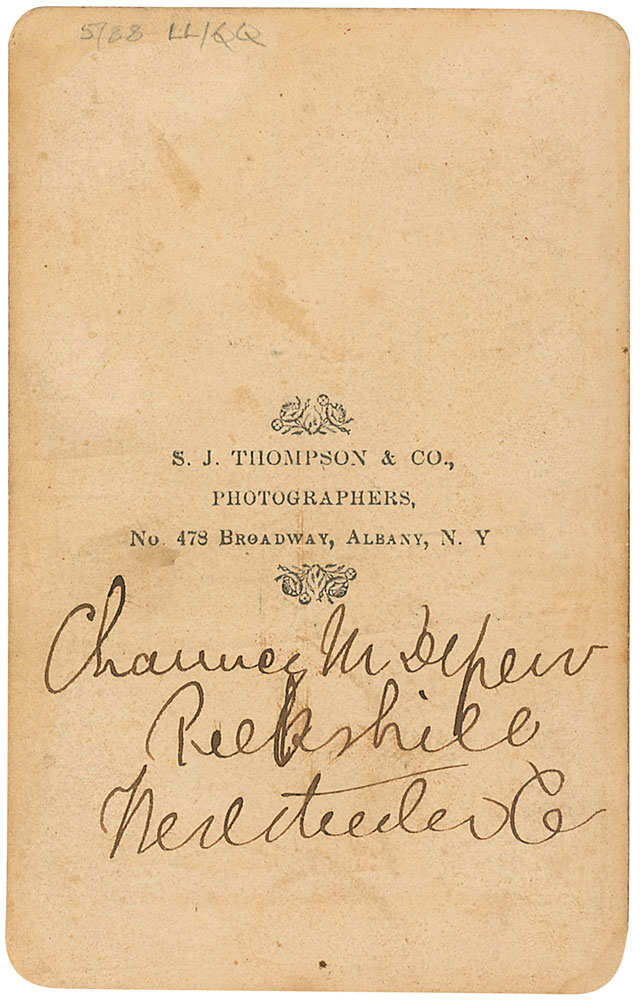 5/88 LL/QQ
S. J. THOMPSON & CO.,
PHOTOGRAPHERS,
No. 478 BROADWAY, ALBANY, N. Y
Chauncey M Depew
Peekskill
Westchester Co